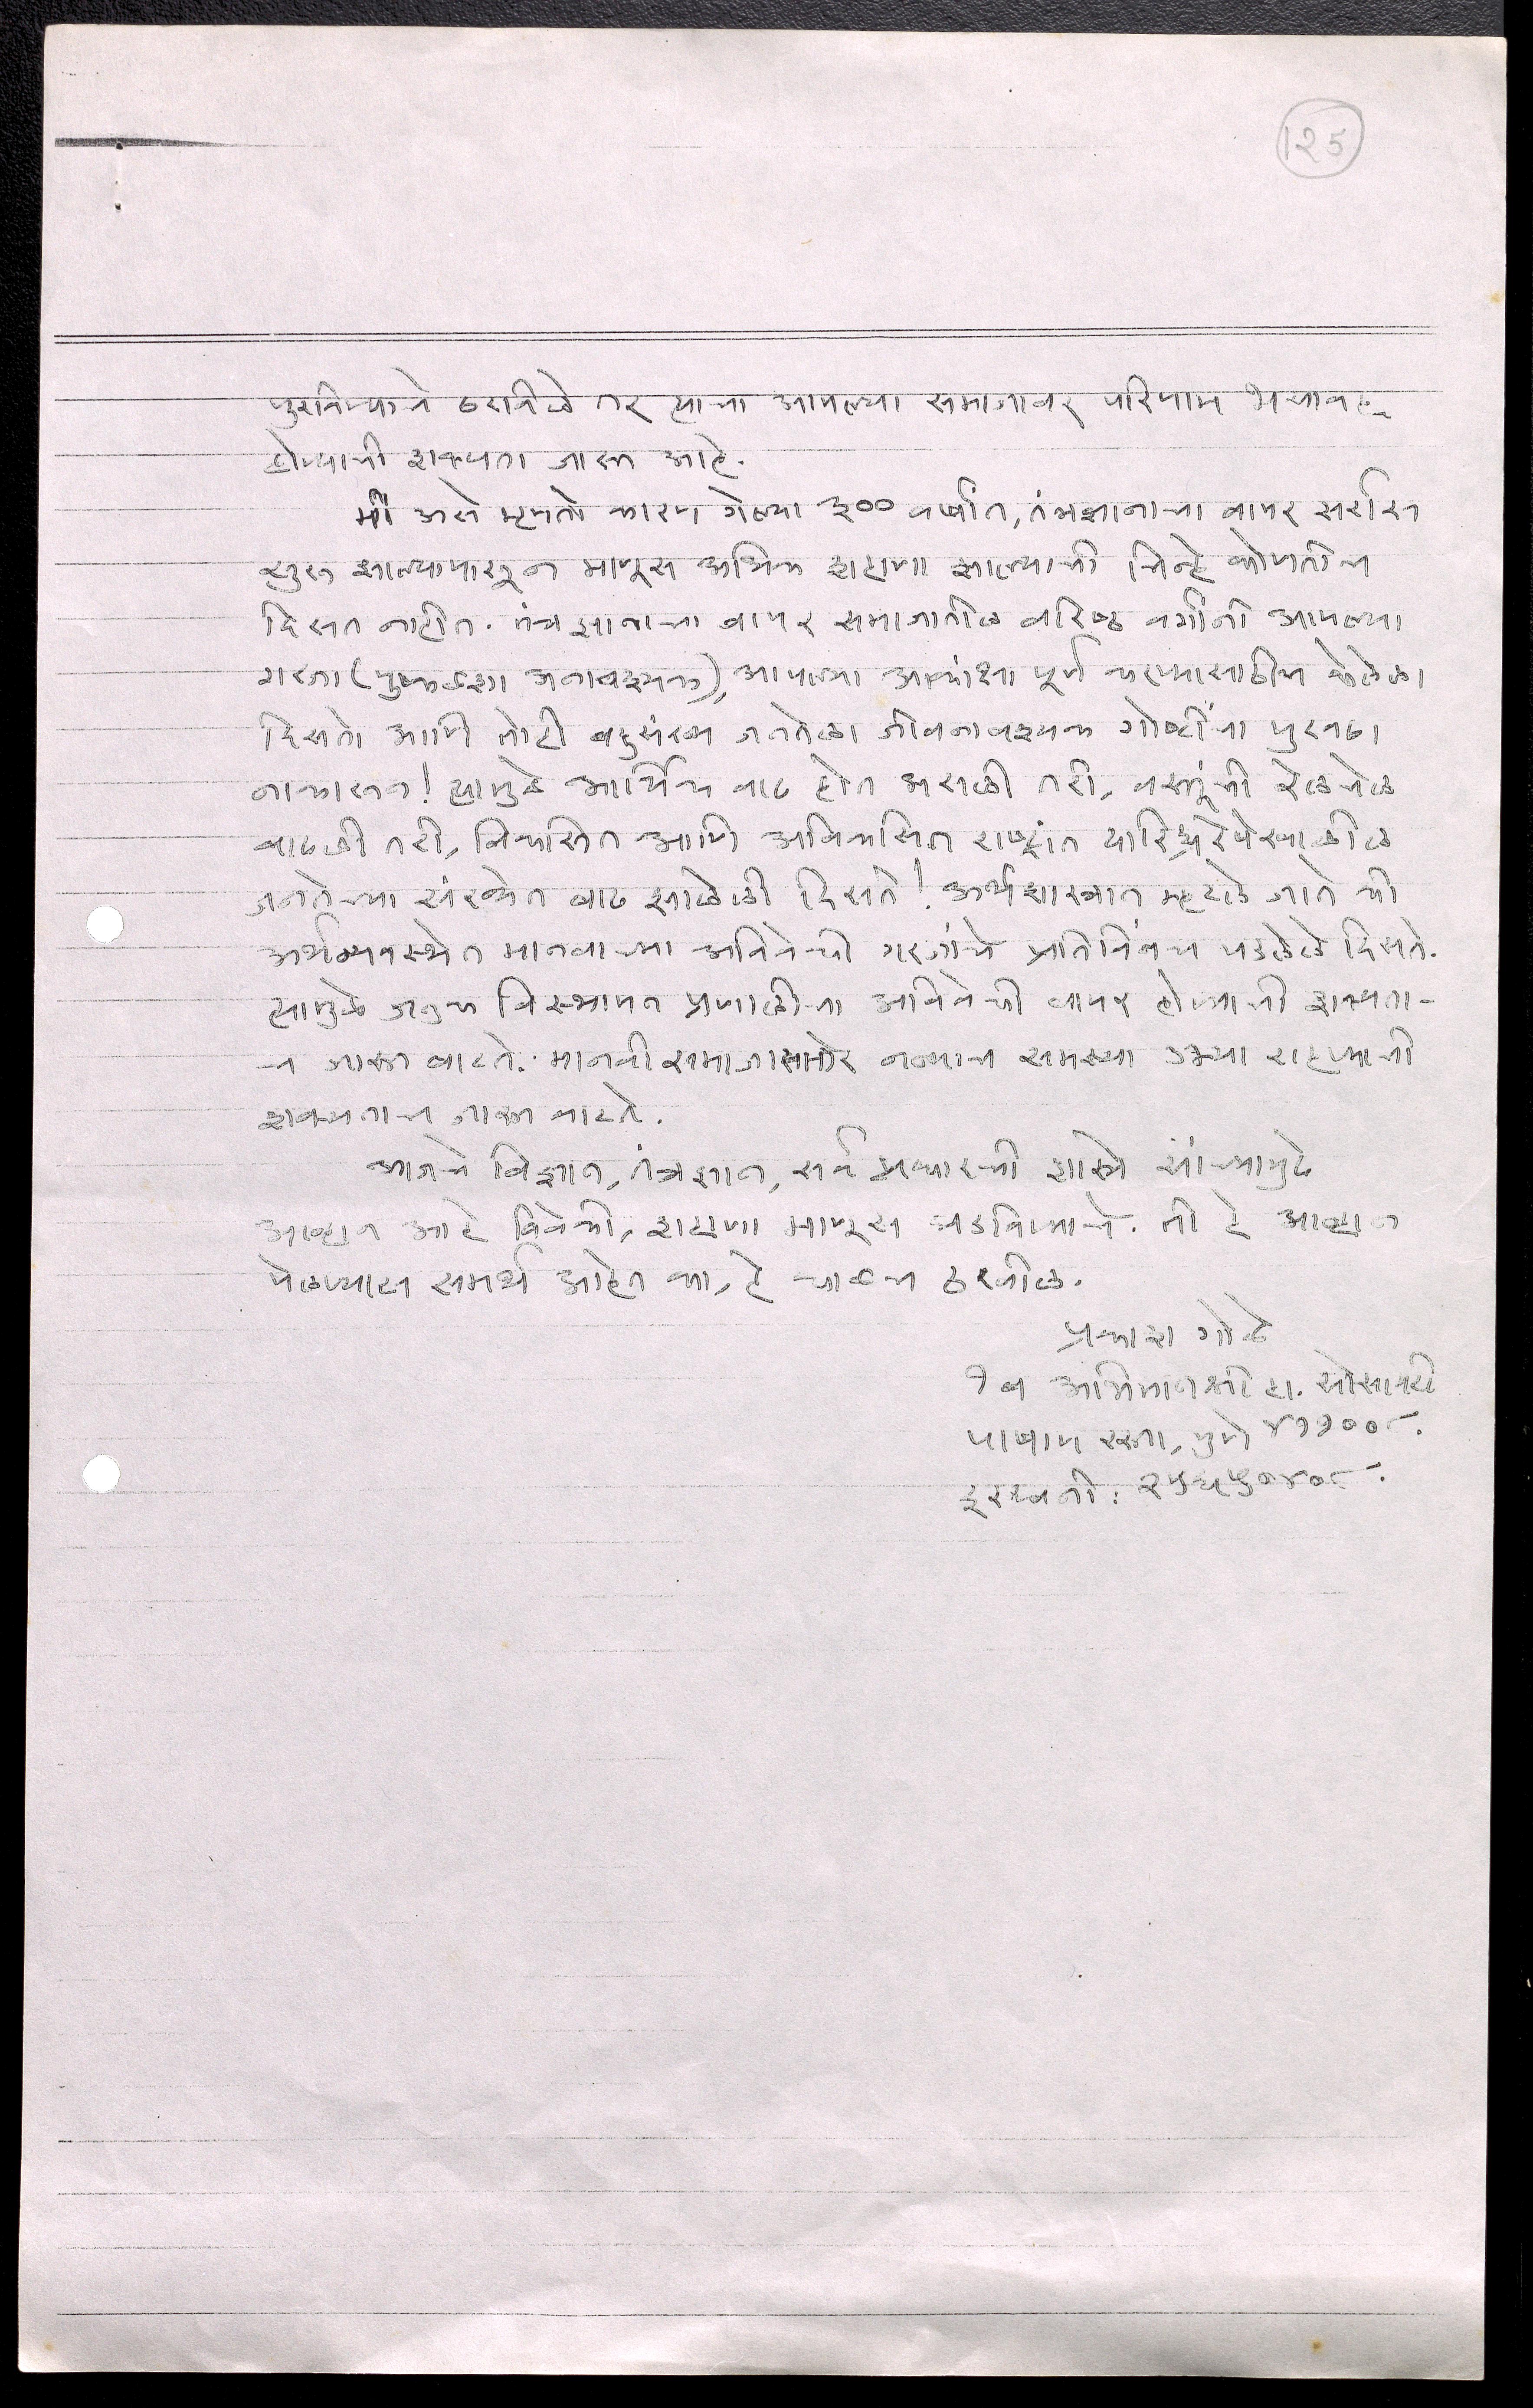 125
पुरविण्याचे ठरविले तर त्याचा आपल्या समाजावर परिणाम भयावह
होण्याची शक्यता जास्त आहे.
मी असे म्हणतो कारण गेल्या ३०० वर्षांत, तंत्रज्ञानाचा वापर सर्रास
सुरू झाल्यापासून माणूस अधिक शहाणा झाल्याची चिन्हे कोणतीच
दिसत नाहीत. तंत्रज्ञानाचा वापर समाजातील वरिष्ठ वर्गाने आपल्या
गरजा (पुष्कळशा अनावश्यक), आपल्या आकांक्षा पूर्ण करण्यासाठीच केलेला
दिसतो आणि तोही बहुसंख्य जनतेला जीवनावश्यक गोष्टींचा पुरवठा
नाकारून! त्यामुळे आर्थिक वाढ होत असली तरी, वस्तूंची रेलचेल
वाढली तरी, विकसित आणि अविकसित राष्ट्रांत दारिद्र्यरेषेखालील
जनतेच्या संख्येत वाढ झालेली दिसते! अर्थशास्त्रात म्हटले जाते की
अर्थव्यवस्थेत मानवाच्या अविवेकी गरजांचे प्रतिबिंबच पडलेले दिसते.
त्यामुळे जनुक विस्थापन प्रणालीचा अविवेकी वापर होण्याची शक्यता-
च जास्त वाटते. मानवी समाजासमोर नव्याच समस्या उभ्या राहण्याची
शक्यताच जास्त वाटते.
आजचे विज्ञान, तंत्रज्ञान, सर्व प्रकारची शास्त्रे यांच्यापुढे
आव्हान आहे विवेकी, शहाणा माणूस घडविण्याचे. ती हे आव्हान
पेलण्यास समर्थ आहेत का, हे काळच ठरवील.
प्रकाश गोळे
१ब अभिमानश्री हा. सोसायटी
पाषाण रस्ता, पुणे ४११००८.
दूरध्वनी: